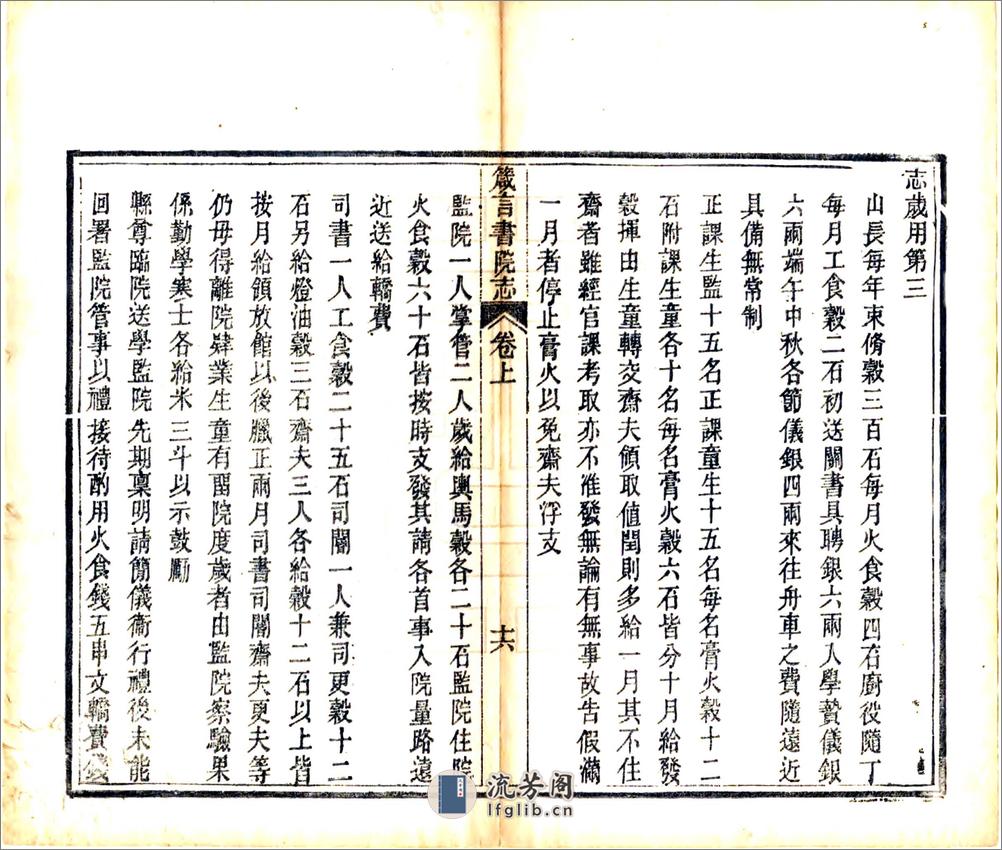 志歲用第三
山長每年束脩穀三百石每月火食穀四石廚役隨丁
每月工食穀二石初送關書具聘銀六兩入學贄儀銀
六兩端午中秋各節儀銀四兩來往舟車之費隨遠近
具備無常制
正課生監十五名正課童生十五名每名膏火穀十二
石附課生童各十名每名膏火穀六石皆分十月給發
穀揮由生童轉交齋夫領取值閏則多給一月其不住
齋者雖經官課考取亦不准發無論有無事故告假滿
一月者停止膏火以免齋夫浮支
箴言書院志 卷上 十六
監院一人掌管二人歲給輿馬穀各二十石監院住院
火食穀六十石皆按時支發其請各首事入院量路遠
近送給轎費
司書一人工食穀二十五石司閽一人兼司更穀十二
石另給燈油穀三石齋夫三人各給穀十二石以上皆
按月給領放館以後臘正兩月司書司閽齋夫更夫等
仍毋得離院肄業生童有畱院度歲者由監院察驗果
係勤學寒士各給米三斗以示鼓勵
縣尊臨院送學監院先期稟明請簡儀衞行禮後未能
回署監院管事以禮接待酌用火食錢五串文轎費錢
流芳阁
lfglib.cf